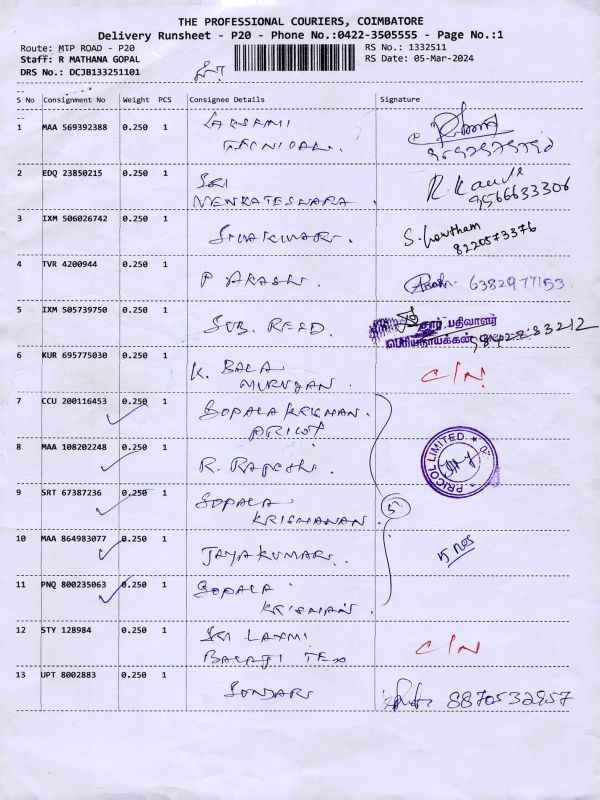 THE PROFESSIONAL COURIERS, COIMBATORE
Delivery Runsheet - P20 - Phone No.:0422-3505555 - Page No.:1
Route: MTP ROAD - P20
RS No.: 1332511
Staff: R MATHANA GOPAL
RS Date: 05-Mar-2024
DRS No.: DCJB133251101
S No Consignment No Weight PCS Consignee Details Signature
1 MAA 569392388 0.250 1 LAKSHMI
2 EDQ 23850215 0.250 1 SRI
VENKATESWARA
9566633306
3 IXM 506026742 0.250 1 SIVAKUMAR. S. Gowtham
8220573376
4 TVR 4200944 0.250 1 P AKASH. 6382977153.
5 IXM 505739750 0.250 1 SUB. REGD. சார் பதிவாளர்
பெரியநாயக்கன்
6 KUR 695775030 0.250 1 K. BALA
MURUGAN. C/N
7 CCU 200116453 0.250 1 GOPALA KRISHNAN.
PRICOL
8 MAA 108202248 0.250 1 R. RAJESH. PRICOL LIMITED
9 SRT 67387236 0.250 1 GOPALA
KRISHANAN. 5
10 MAA 864983077 0.250 1 JAYAKUMAR. 5 nos
11 PNQ 800235063 0.250 1 GOPALA
KRISHNAN.
12 STY 128984 0.250 1 SRI LAXMI
BALAJI TEX C/N
13 UPT 8002883 0.250 1 SUNDAR 8870532957